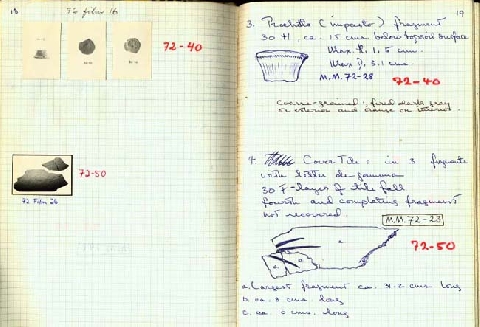 18
72-40
72-50
72 Film 26
19
3. Rocchetto (impasto) fragment
30 H, ca. 15 cm. below topsoil surface
Max h. 1.5 cm.
Max p. 3.1 cm.
M.M. 72-28
72-40
Coarse-grained; fired dark gray
on exterior and orange on interior.
4. Cover Tile: in 3 fragments
30 F - layer of tile fall
fourth and completing fragment
not recovered
M.M. 72-23
72-50
a.
a. Largest fragment ca. cm. long
b. ca. cm. long
c. ca. cm. long